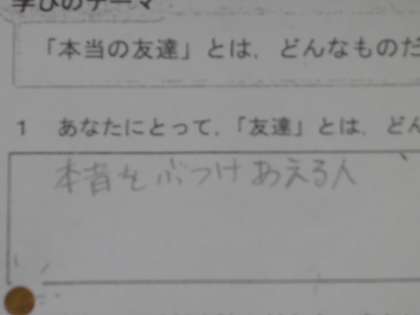 学びのテーマ
「本当の友達」とは、どんなものだ
1 あなたにとって、「友達」とは、どん
本音をぶつけあえる人